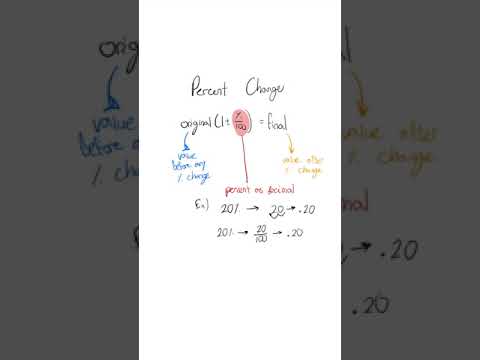 Percent Change
original (1 ± %/100) = final
value before any % change
value after % change
percent as decimal
Ex) 20% → 20 → .20
20% → 20/100 → .20